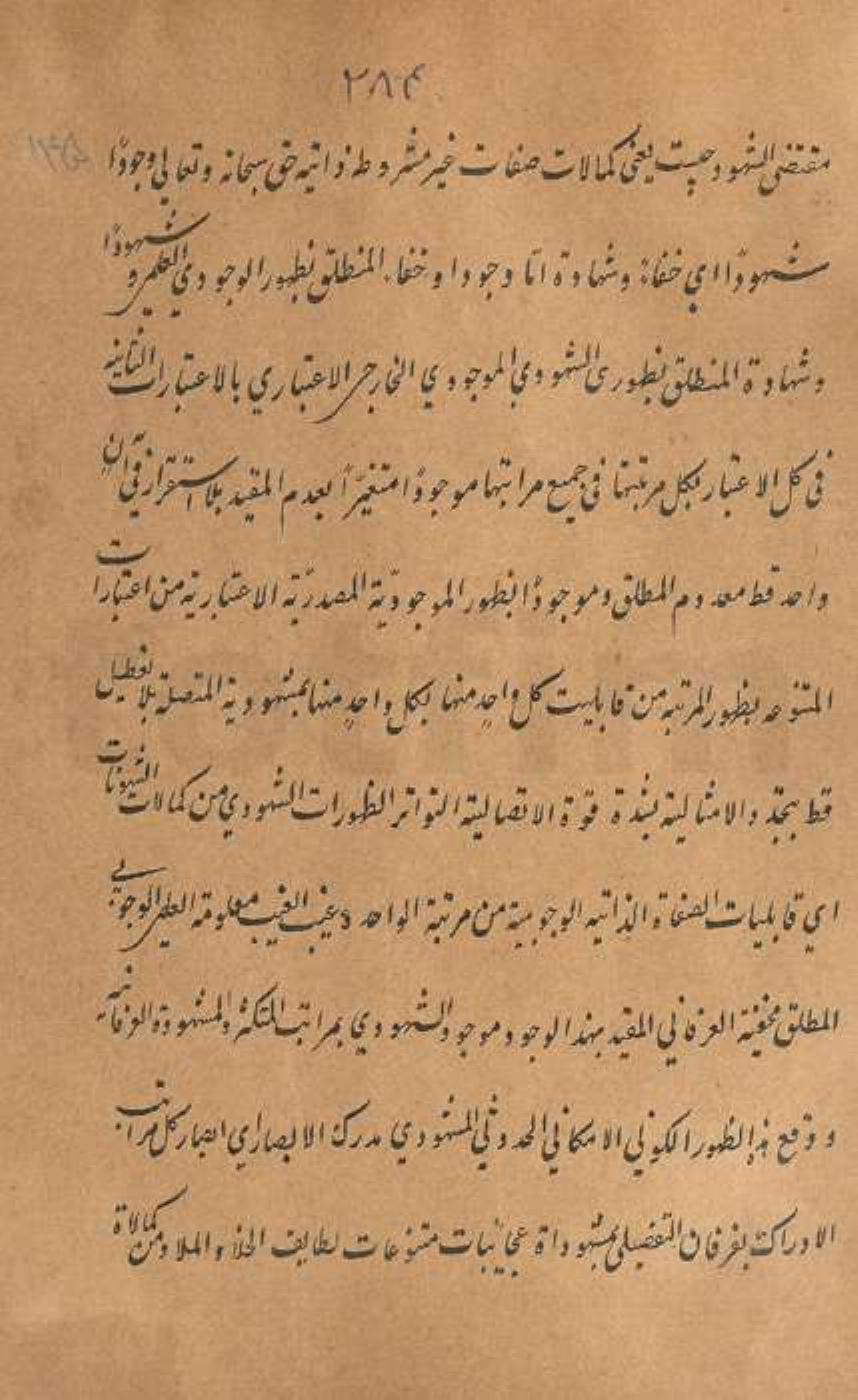 ۲۸۴
مقتضی الشهود چیست یعنی کمالات صفات غیر مشروطه ذاتیه حق سبحانه وتعالی وجودًا
شهودًا ای خفاءً وشهادة امّا وجودا و خفاء المنطلق بظهور الوجودی العلمی و شهودًا
وشهادة المنطلق بظوری الشهودی الموجودی الخارجی الاعتباری بالاعتبارات الثانیه
فی کل الاعتبار بکل مرتبتها فی جمیع مراتبها موجودًا متغیّراً بعدم المقید بلا استقرار فی آنٍ
واحد قط معدوم المطلق وموجودًا بظور الموجودیّة المصدریّة الاعتباریّة من اعتبارات
المتنوعه بظور المرتبه من قابلیت کل واحدٍ منها بکل واحدٍ منها بمشهودیة المتصلة بلا تعطیل
قط بتجدّد الامثالیة بشدة قوّة الاتصالیة التواتر الظورات الشهودی من کمالات الشیونات
ای قابلیات الصفاة الذاتیه الوجوبیة من مرتبة الواحد غیب الغیب معلومة العلمی الوجوبی
المطلق مخفیة العرفانی المقید بهذا الوجود موجود الشهودی بمراتب المتکثرة المشهودة العرفانیه
و وقع هذا الظور الکونی الامکانی الحدوثی المشهودی مدرک الابصار ای ابصار کل مراتب
الادراک بفرقان التفصیلی بمشهوداة عجائبات متنوعات لطایف الخلأ والملأ ومن کمالاة